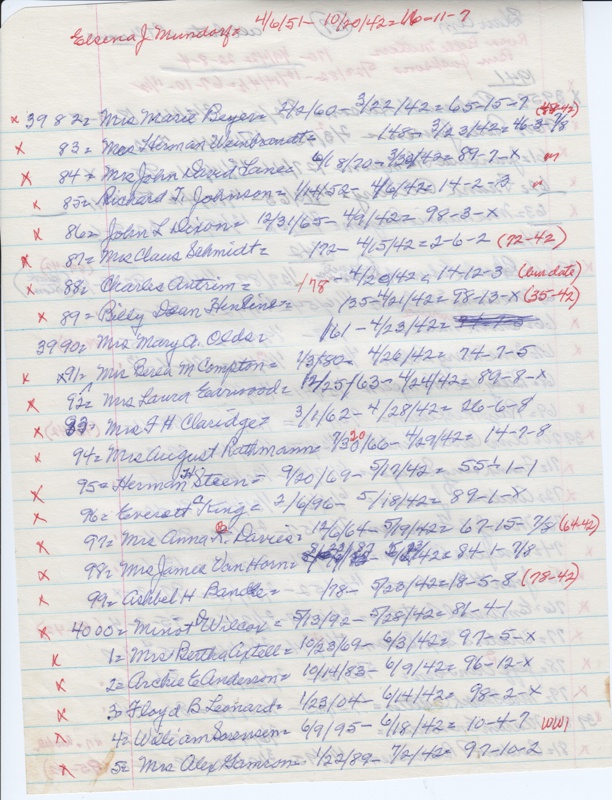 Elsena J. Mundorf= 4/6/51- 10/20/42=116-11-7
x 39 82= Mrs Marie Beyer= 2/2/60- 3/22/42= 65-15-7 (48-42)
x 83= Mrs Herman Weinbrandt= 148- 3/23/42= 46-3-7/8
x 84= Mrs John David Lane= 6/18/70- 3/30/42= 89-7-x
x 85= Richard T. Johnson= 1/14/52- 4/6/42= 14-2-3
x 86= John L Dixon= 12/31/65- 4/9/42= 98-3-x
x 87= Mrs Claus Schmidt= 172- 4/15/42=2-6-2 (72-42)
x 88= Charles Antrim= 178- 4/20/42= 14-12-3
x 89= Billy Dean Henline= 135-4/21/42= 98-13-x (35-42)
3990= Mrs Mary A. Olds= 1/61- 4/23/42=
x x91= Mrs Derea M Compton= 1/3/80= 4/26/42= 74-7-5
x 92= Mrs Laura Earwood= 12/25/63- 4/24/42= 89-8-x
x 93= Mrs F H Claridge= 3/1/62- 4/28/42= 26-6-8
x 94= Mrs August Rathmann= 7/30/66- 4/29/42= 14-7-8
x 95= Herman H Steen= 9/20/69- 5/17/42= 55-1-1
x 96= Everett C King= 2/6/96- 5/18/42= 89-1-x
x 97= Mrs Anna R. Davies= 12/6/64- 5/19/42= 67-15-7/8 (64-42)
x 98= Mrs James Van Horn= 84-1-7/8
x 99= Ashbel H Bandle= 178- 5/23/42=18-5-8 (78-42)
x 4000= Minot Wilcox= 5/13/92- 5/28/42= 81-4-1
x 1= Mrs Bertha Axtell= 10/23/69- 6/3/42= 97-5-x
x 2= Archie E Anderson= 10/14/83- 6/9/42= 96-12-x
x 3= Floyd B Leonard= 1/23/04- 6/14/42= 98-2-x
x 4= William Sorensen= 6/9/95- 6/18/42= 10-4-7 WW1
x 5= Mrs Alex Gamson= 1/22/89- 7/2/42= 97-10-2